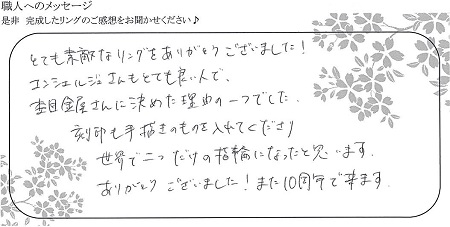 職人へのメッセージ
是非 完成したリングのご感想をお聞かせください♪
とても素敵なリングをありがとうございました!
コンシェルジュさんもとても良い人で、
杢目金屋さんに決めた理由の一つでした.
刻印も手描きのものを入れてくださり
世界で二つだけの指輪になったと思います.
ありがとうございました!また10周年で来ます.